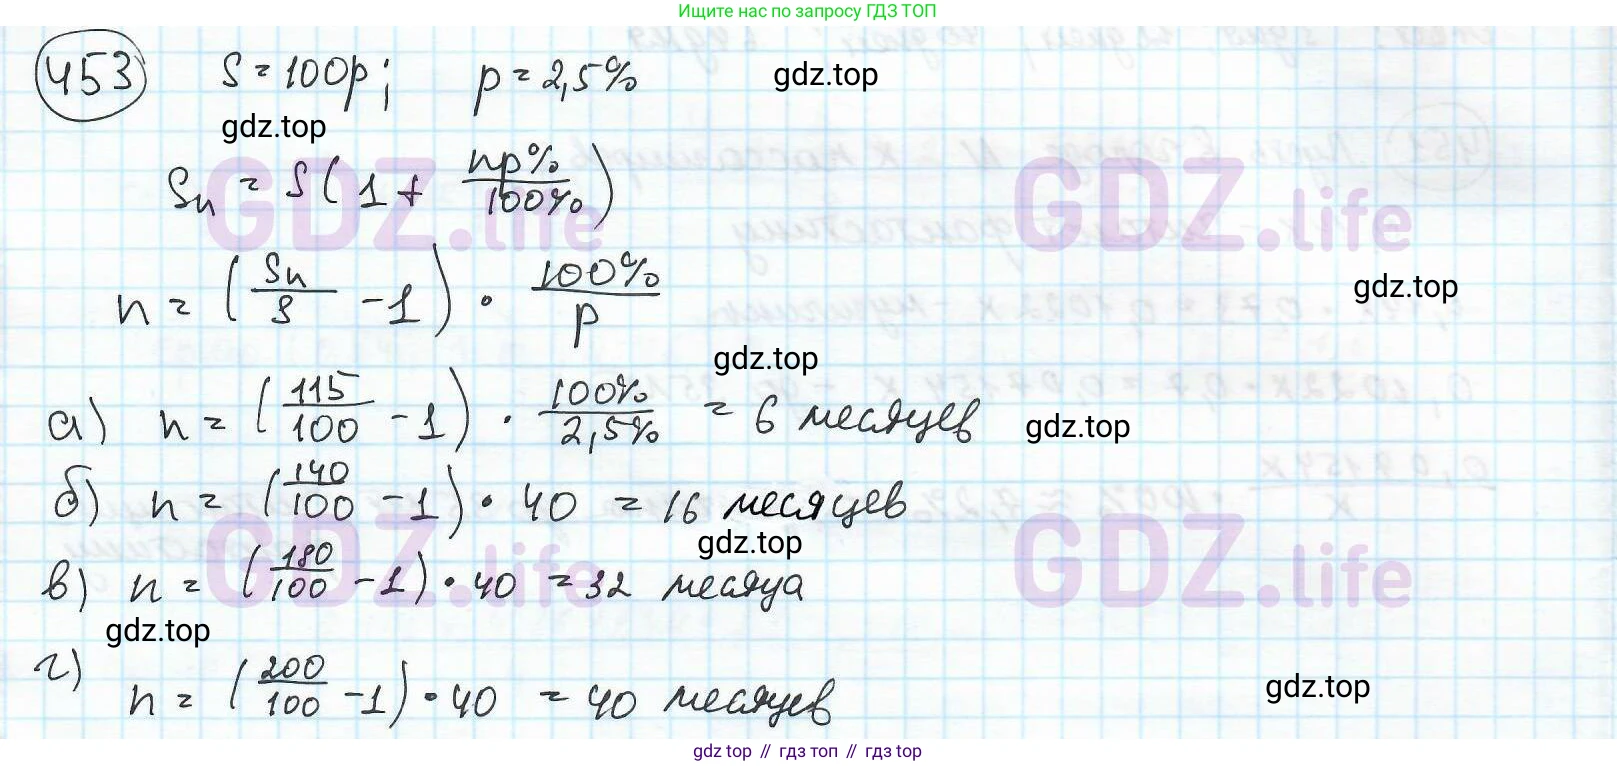 Ищите нас по запросу ГДЗ ТОП
453 S = 100р; p = 2,5%
gdz.top
gdz.top
Sn = S(1 + np%/100%)
GDZ.life GDZ.life
n = (Sn/S - 1) · 100%/p
gdz.top
gdz.top
а) n = (115/100 - 1) · 100%/2,5% = 6 месяцев
gdz.top
б) n = (140/100 - 1) · 40 = 16 месяцев
gdz.top
GDZ.life GDZ.life
в) n = (180/100 - 1) · 40 = 32 месяца
gdz.top
г) n = (200/100 - 1) · 40 = 40 месяцев
gdz.top
gdz top // гдз топ // гдз top